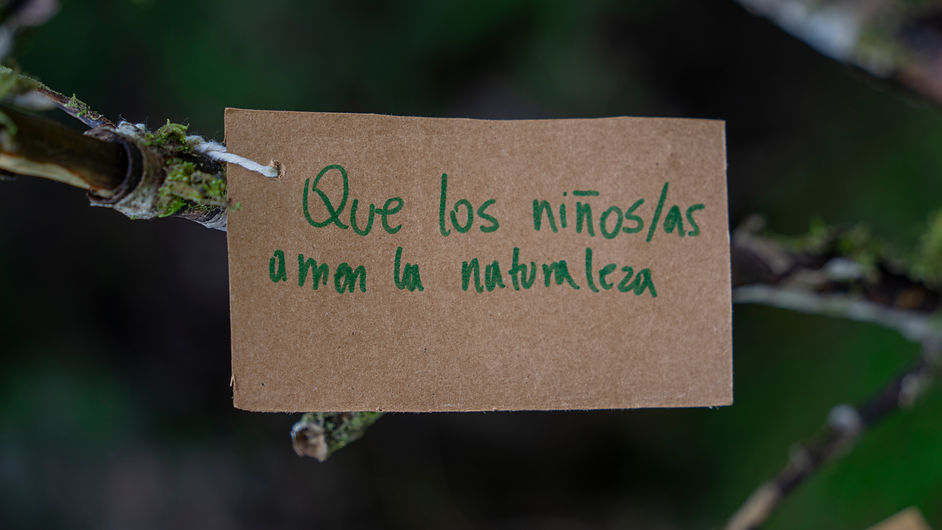 Que los niños/as
amen la naturaleza